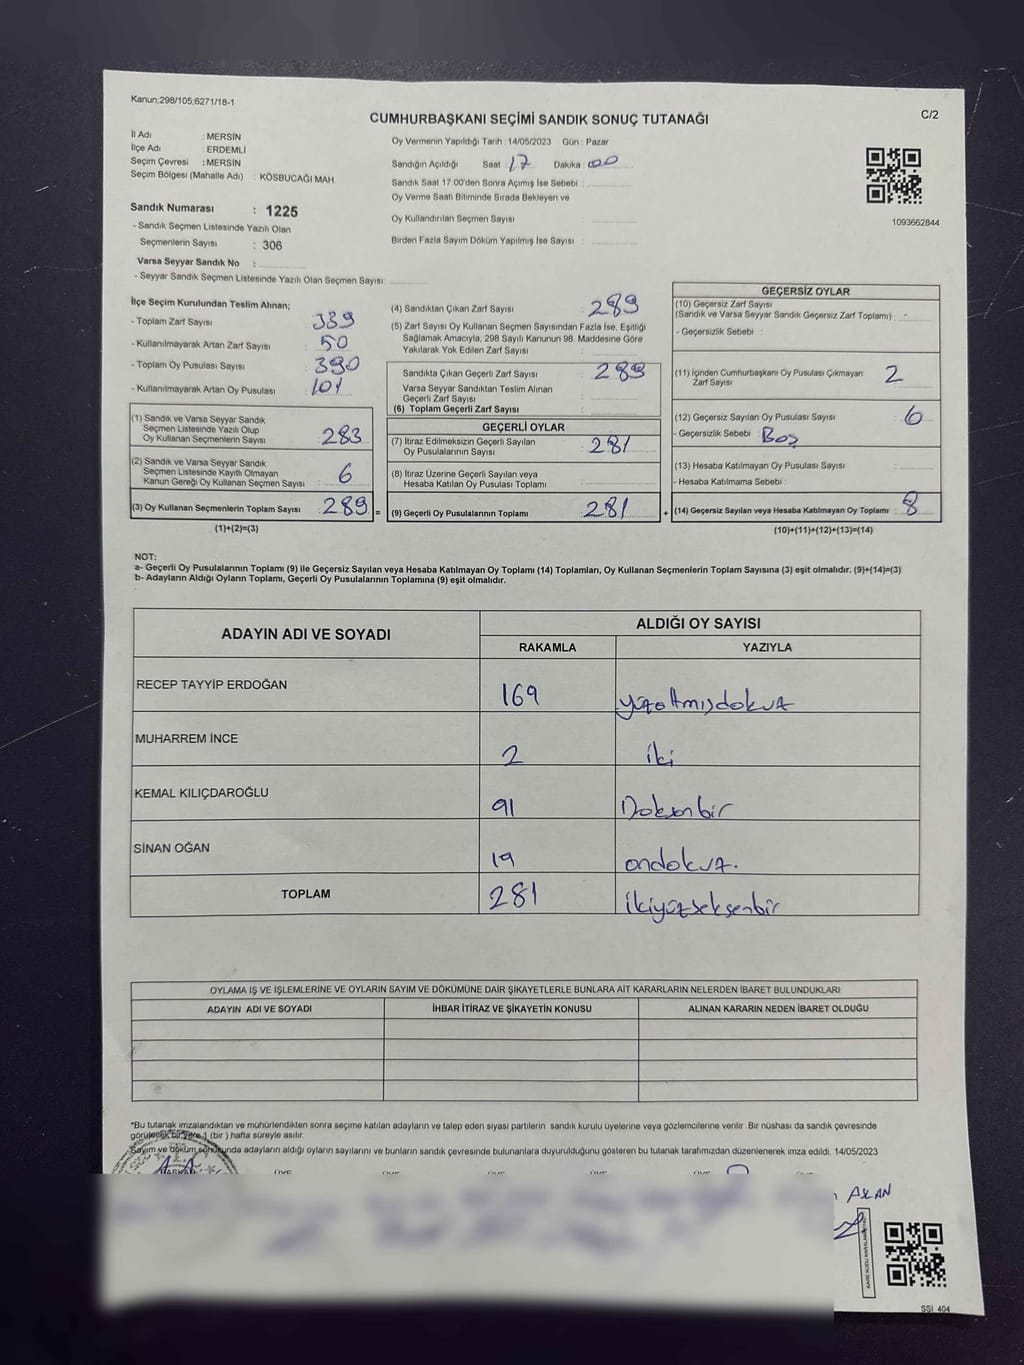 Kanun;298/105;6271/18-1
CUMHURBAŞKANI SEÇİMİ SANDIK SONUÇ TUTANAĞI
C/2
İl Adı : MERSİN
İlçe Adı : ERDEMLİ
Seçim Çevresi : MERSİN
Seçim Bölgesi (Mahalle Adı) : KÖSBUCAĞI MAH.
Sandık Numarası : 1225
- Sandık Seçmen Listesinde Yazılı Olan
Seçmenlerin Sayısı : 306
Varsa Seyyar Sandık No :
- Seyyar Sandık Seçmen Listesinde Yazılı Olan Seçmen Sayısı:
Oy Vermenin Yapıldığı Tarih : 14/05/2023 Gün : Pazar
Sandığın Açıldığı Saat : 17 Dakika : 00
Sandık Saat 17:00'den Sonra Açımış İse Sebebi :
Oy Verme Saati Bitiminde Sırada Bekleyen ve
Oy Kullandırılan Seçmen Sayısı :
Birden Fazla Sayım Döküm Yapılmış İse Sayısı :
1093662844
İlçe Seçim Kurulundan Teslim Alınan;
- Toplam Zarf Sayısı : 339
- Kullanılmayarak Artan Zarf Sayısı : 50
- Toplam Oy Pusulası Sayısı : 390
- Kullanılmayarak Artan Oy Pusulası : 101
(1) Sandık ve Varsa Seyyar Sandık
Seçmen Listesinde Yazılı Olup
Oy Kullanan Seçmenlerin Sayısı : 283
(2) Sandık ve Varsa Seyyar Sandık
Seçmen Listesinde Kayıtlı Olmayan
Kanun Gereği Oy Kullanan Seçmen Sayısı : 6
(3) Oy Kullanan Seçmenlerin Toplam Sayısı : 289 =
(1)+(2)=(3)
(4) Sandıktan Çıkan Zarf Sayısı : 289
(5) Zarf Sayısı Oy Kullanan Seçmen Sayısından Fazla İse, Eşitliği
Sağlamak Amacıyla, 298 Sayılı Kanunun 98. Maddesine Göre
Yakılarak Yok Edilen Zarf Sayısı :
Sandıkta Çıkan Geçerli Zarf Sayısı : 289
Varsa Seyyar Sandıktan Teslim Alınan
Geçerli Zarf Sayısı :
(6) Toplam Geçerli Zarf Sayısı :
GEÇERLİ OYLAR
(7) İtiraz Edilmeksizin Geçerli Sayılan
Oy Pusulalarının Sayısı : 281
(8) İtiraz Üzerine Geçerli Sayılan veya
Hesaba Katılan Oy Pusulası Toplamı :
(9) Geçerli Oy Pusulalarının Toplamı : 281 +
GEÇERSİZ OYLAR
(10) Geçersiz Zarf Sayısı
(Sandık ve Varsa Seyyar Sandık Geçersiz Zarf Toplamı) :
- Geçersizlik Sebebi :
(11) İçinden Cumhurbaşkanı Oy Pusulası Çıkmayan
Zarf Sayısı : 2
(12) Geçersiz Sayılan Oy Pusulası Sayısı : 6
- Geçersizlik Sebebi : Boş
(13) Hesaba Katılmayan Oy Pusulası Sayısı :
- Hesaba Katılmama Sebebi :
(14) Geçersiz Sayılan veya Hesaba Katılmayan Oy Toplamı : 8
(10)+(11)+(12)+(13)=(14)
NOT:
a- Geçerli Oy Pusulalarının Toplamı (9) ile Geçersiz Sayılan veya Hesaba Katılmayan Oy Toplamı (14) Toplamları, Oy Kullanan Seçmenlerin Toplam Sayısına (3) eşit olmalıdır. (9)+(14)=(3)
b- Adayların Aldığı Oyların Toplamı, Geçerli Oy Pusulalarının Toplamına (9) eşit olmalıdır.
ADAYIN ADI VE SOYADI
ALDIĞI OY SAYISI
RAKAMLA YAZIYLA
RECEP TAYYİP ERDOĞAN 169 yüzaltmışdokuz
MUHARREM İNCE 2 iki
KEMAL KILIÇDAROĞLU 91 Doksanbir
SİNAN OĞAN 19 ondokuz.
TOPLAM 281 ikiyüzseksenbir
OYLAMA İŞ VE İŞLEMLERİNE VE OYLARIN SAYIM VE DÖKÜMÜNE DAİR ŞİKAYETLERLE BUNLARA AİT KARARLARIN NELERDEN İBARET BULUNDUKLARI
ADAYIN ADI VE SOYADI İHBAR İTİRAZ VE ŞİKAYETİN KONUSU ALINAN KARARIN NEDEN İBARET OLDUĞU
*Bu tutanak imzalandıktan ve mühürlendikten sonra seçime katılan adayların ve talep eden siyasi partilerin sandık kurulu üyelerine veya gözlemcilerine verilir. Bir nüshası da sandık çevresinde
görülecek bir yere 1 (bir ) hafta süreyle asılır.
Sayım ve döküm sonucunda adayların aldığı oyların sayılarını ve bunların sandık çevresinde bulunanlara duyurulduğunu gösteren bu tutanak tarafımızdan düzenlenerek imza edildi. 14/05/2023
SSI_404